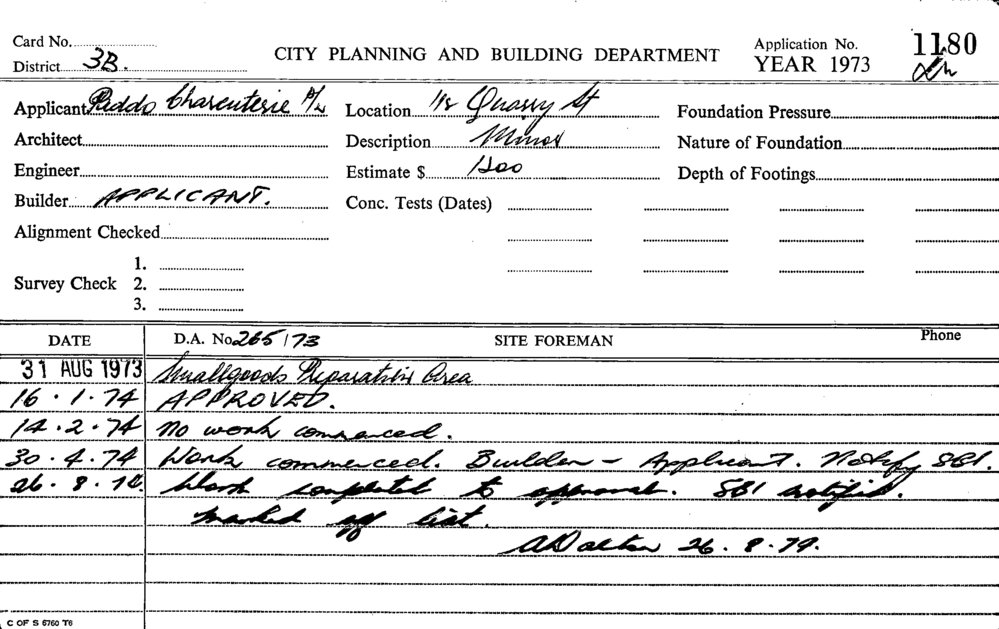 Card No.
District 3B.
CITY PLANNING AND BUILDING DEPARTMENT
Application No. 1180
YEAR 1973
Applicant Charcuterie P/L
Location 1/2 Quarry St
Foundation Pressure
Architect
Description Minor
Nature of Foundation
Engineer
Estimate $ 1200
Depth of Footings
Builder APPLICANT.
Conc. Tests (Dates)
Alignment Checked
Survey Check
1.
2.
3.
DATE D.A. No 265/73 SITE FOREMAN Phone
31 AUG 1973 Smallgoods Preparation Area
16.1.74 APPROVED.
14.2.74 No work commenced.
30.4.74 Work commenced. Builder - Applicant. Notify SBI.
26.8.74 Work completed to approval. SBI notified.
marked off list.
ADalton 26.8.74.
C OF S 6760 T6